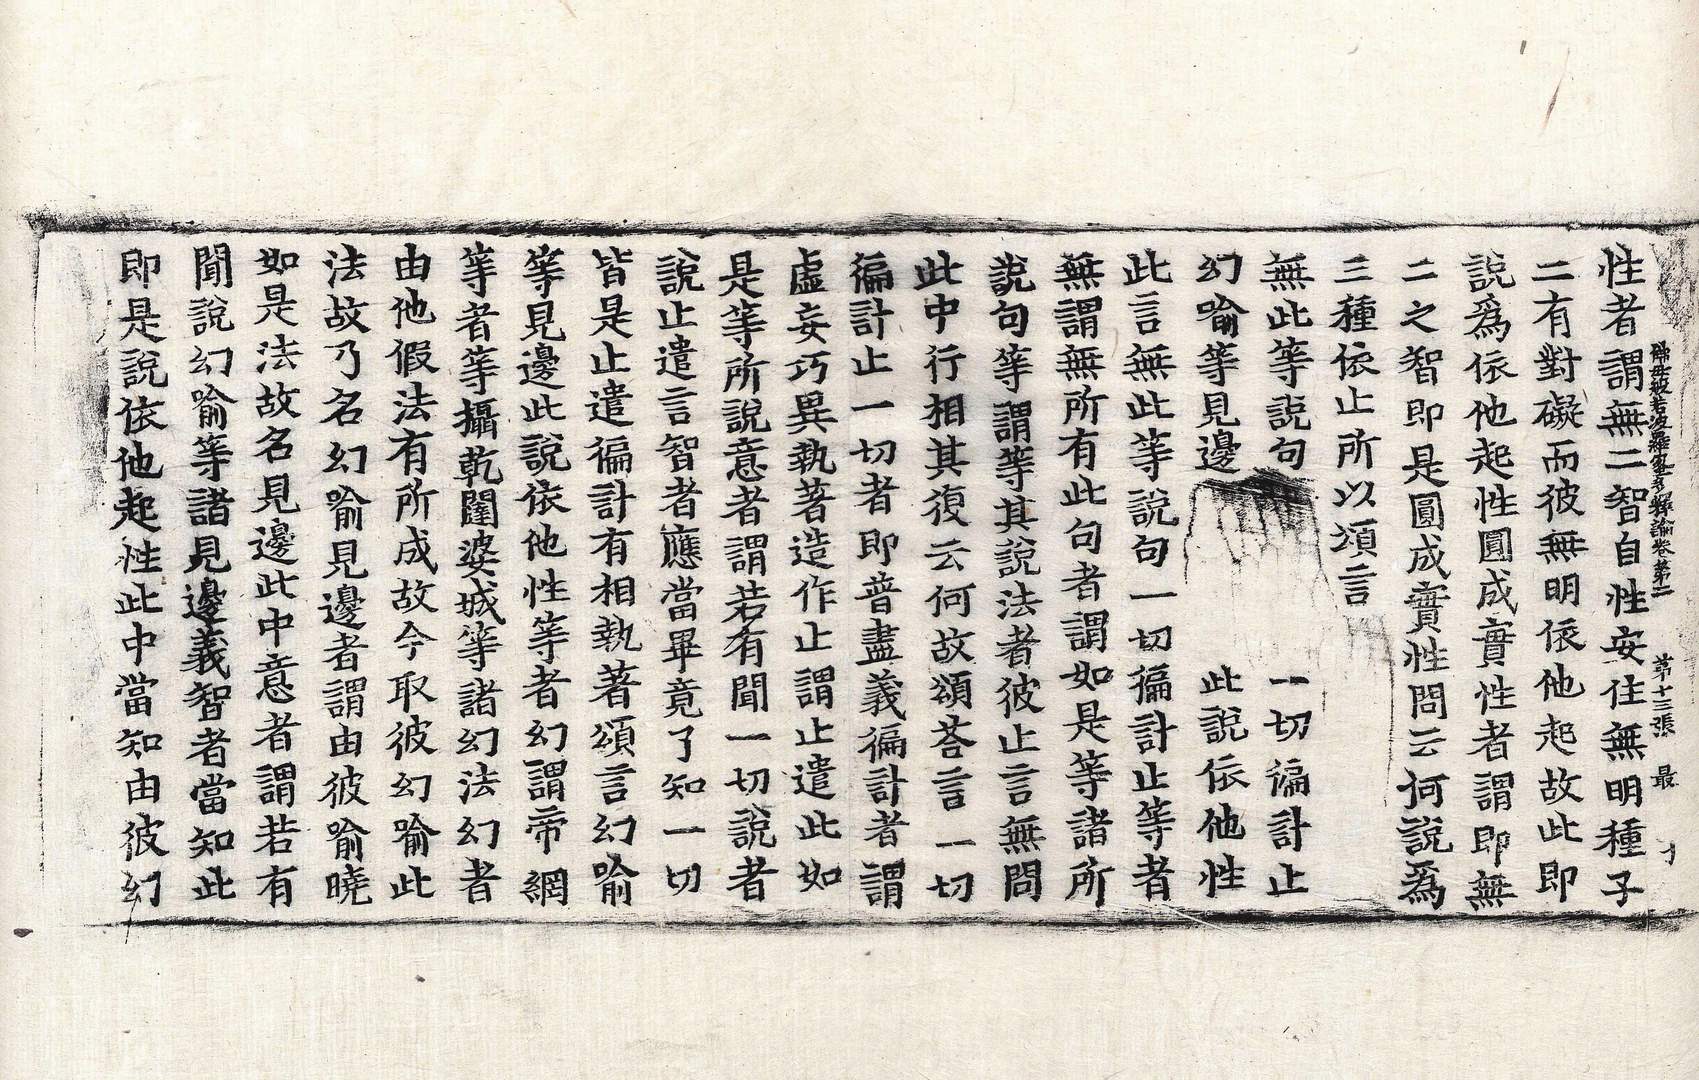 佛母般若波羅蜜多釋論卷第二　第十三張　最
性者謂無二智自性安住無明種子
二有對礙而彼無明依他起故此即
說爲依他起性圓成實性者謂即無
二之智即是圓成實性問云何說爲
三種依止所以頌言
無此等說句　一切徧計止
幻喻等見邊　此說依他性
此言無此等說句一切徧計止等者
無謂無所有此句者謂如是等諸所
說句等謂等其說法者彼止言無問
此中行相其復云何故頌荅言一切
徧計止一切者即普盡義徧計者謂
虛妄巧異執著造作止謂止遣此如
是等所說意者謂若有聞一切說者
說止遣言智者應當畢竟了知一切
皆是止遣徧計有相執著頌言幻喻
等見邊此說依他性等者幻謂帝網
等者等攝乾闥婆城等諸幻法幻者
由他假法有所成故今取彼幻喻此
法故乃名幻喻見邊者謂由彼喻曉
如是法故名見邊此中意者謂若有
聞說幻喻等諸見邊義智者當知此
即是說依他起性此中當知由彼幻